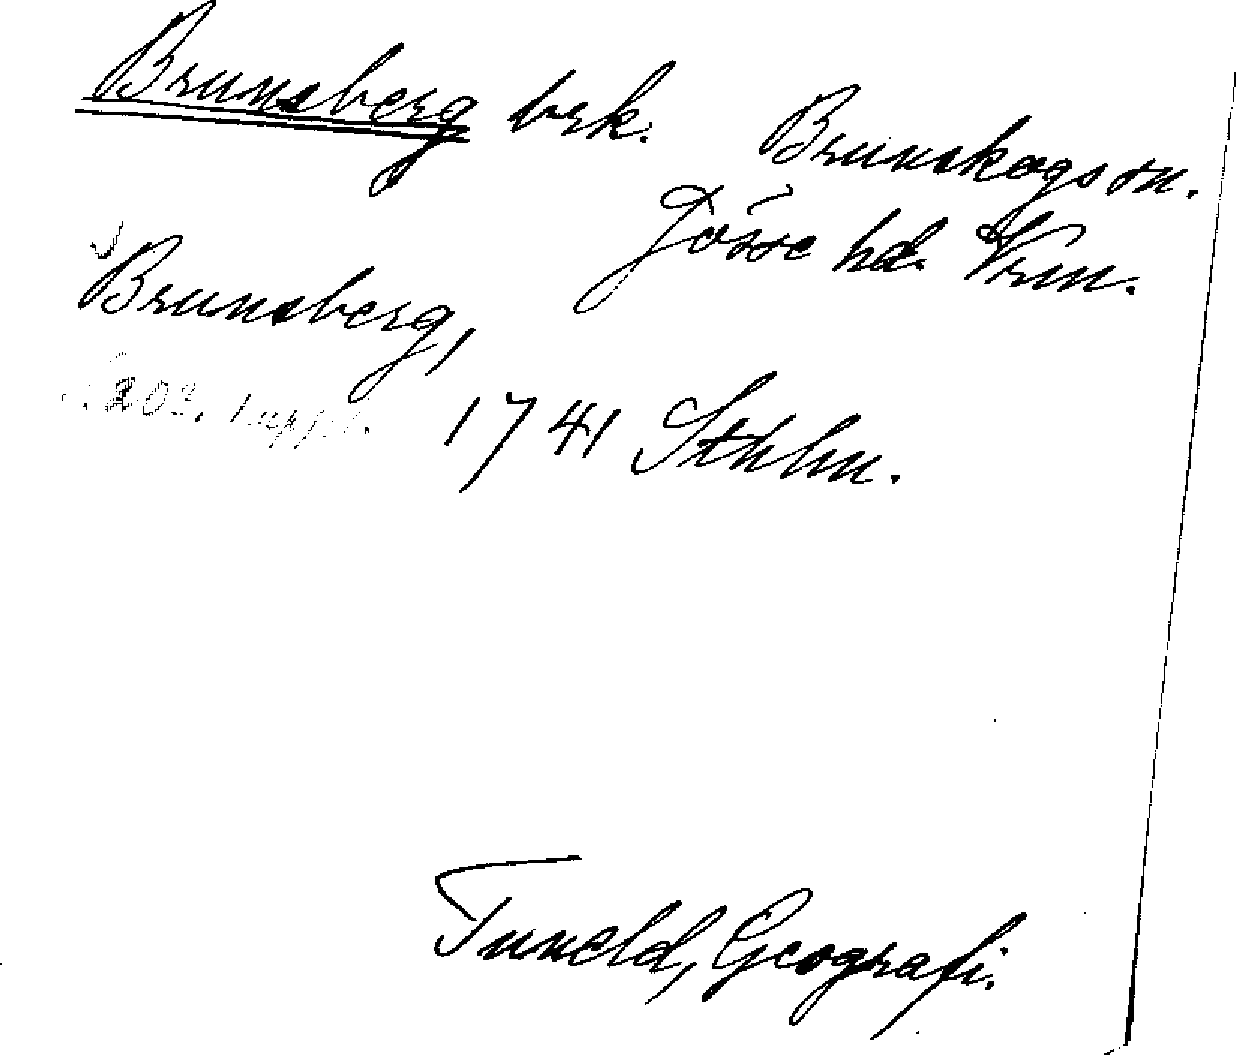 Brunsberg brk. Brunskogs sn.
Jösse hd. Vrm.
Brunsberg,
s. 203.
1741 Sthlm.
Tuneld, Geografi.